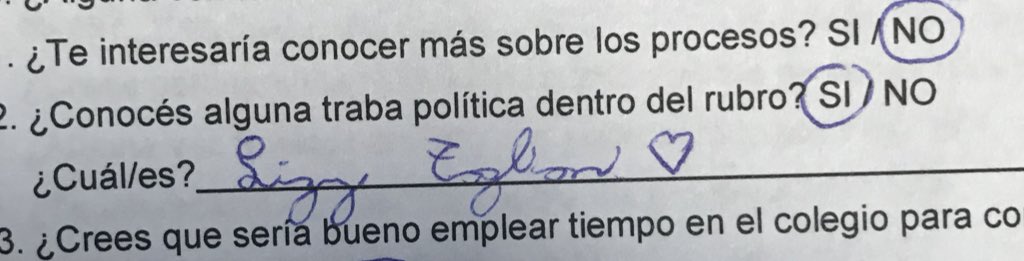 . ¿Te interesaría conocer más sobre los procesos? SI / NO
2. ¿Conocés alguna traba política dentro del rubro? SI / NO
¿Cuál/es? Lizy
3. ¿Crees que sería bueno emplear tiempo en el colegio para co